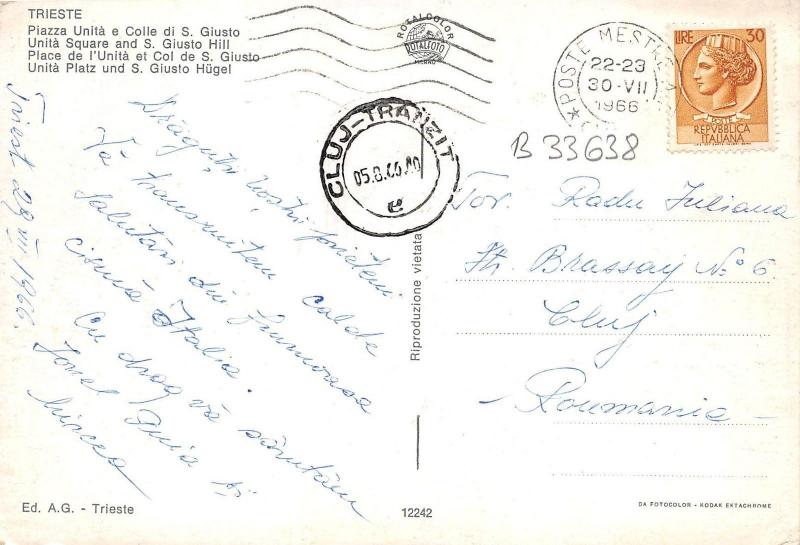 TRIESTE
Piazza Unità e Colle di S. Giusto
Unità Square and S. Giusto Hill
Place de l'Unità et Col de S. Giusto
Unità Platz und S. Giusto Hügel
ROTALCOLOR
ROTALFOTO
MILANO
POSTE MESTRE
22-23
30·VII
1966
LIRE 30
POSTE
REPVBBLICA
ITALIANA
CLUJ-TRANZIT
05.8.66.
e
B 33638
Triest 29 VII 1966.
Drăguții noștri prieteni
Vă transmitem calde
salutări din frumoasa
Italia.
Cu drag vă sărutăm
Ionel și
Mircea
Tov. Radu Iuliana
Str. Brassay Nº 6.
Cluj
- Roumanie -
Riproduzione vietata
Ed. A.G. - Trieste
12242
DA FOTOCOLOR - KODAK EKTACHROME